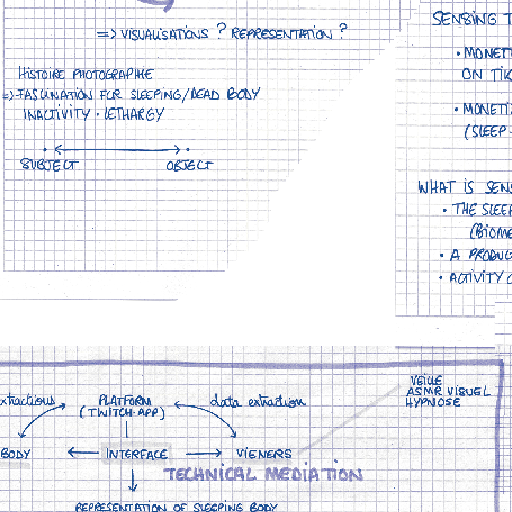 => VISUALISATIONS ? REPRESENTATION ?
HISTOIRE PHOTOGRAPHIE
=> FASCINATION FOR SLEEPING/DEAD BODY
INACTIVITY · LETHARGY
SUBJECT OBJECT
SENSING T
• MONETI
ON TIK
• MONETI
(SLEEP
WHAT IS SENS
• THE SLEEP
(BIOME
• A PRODUC
• ACTIVITY
VEILLE
ASMR VISUEL
HYPNOSE
extractions PLATFORM data extraction
(TWITCH APP)
BODY INTERFACE VIEWERS
TECHNICAL MEDIATION
REPRESENTATION OF SLEEPING BODY